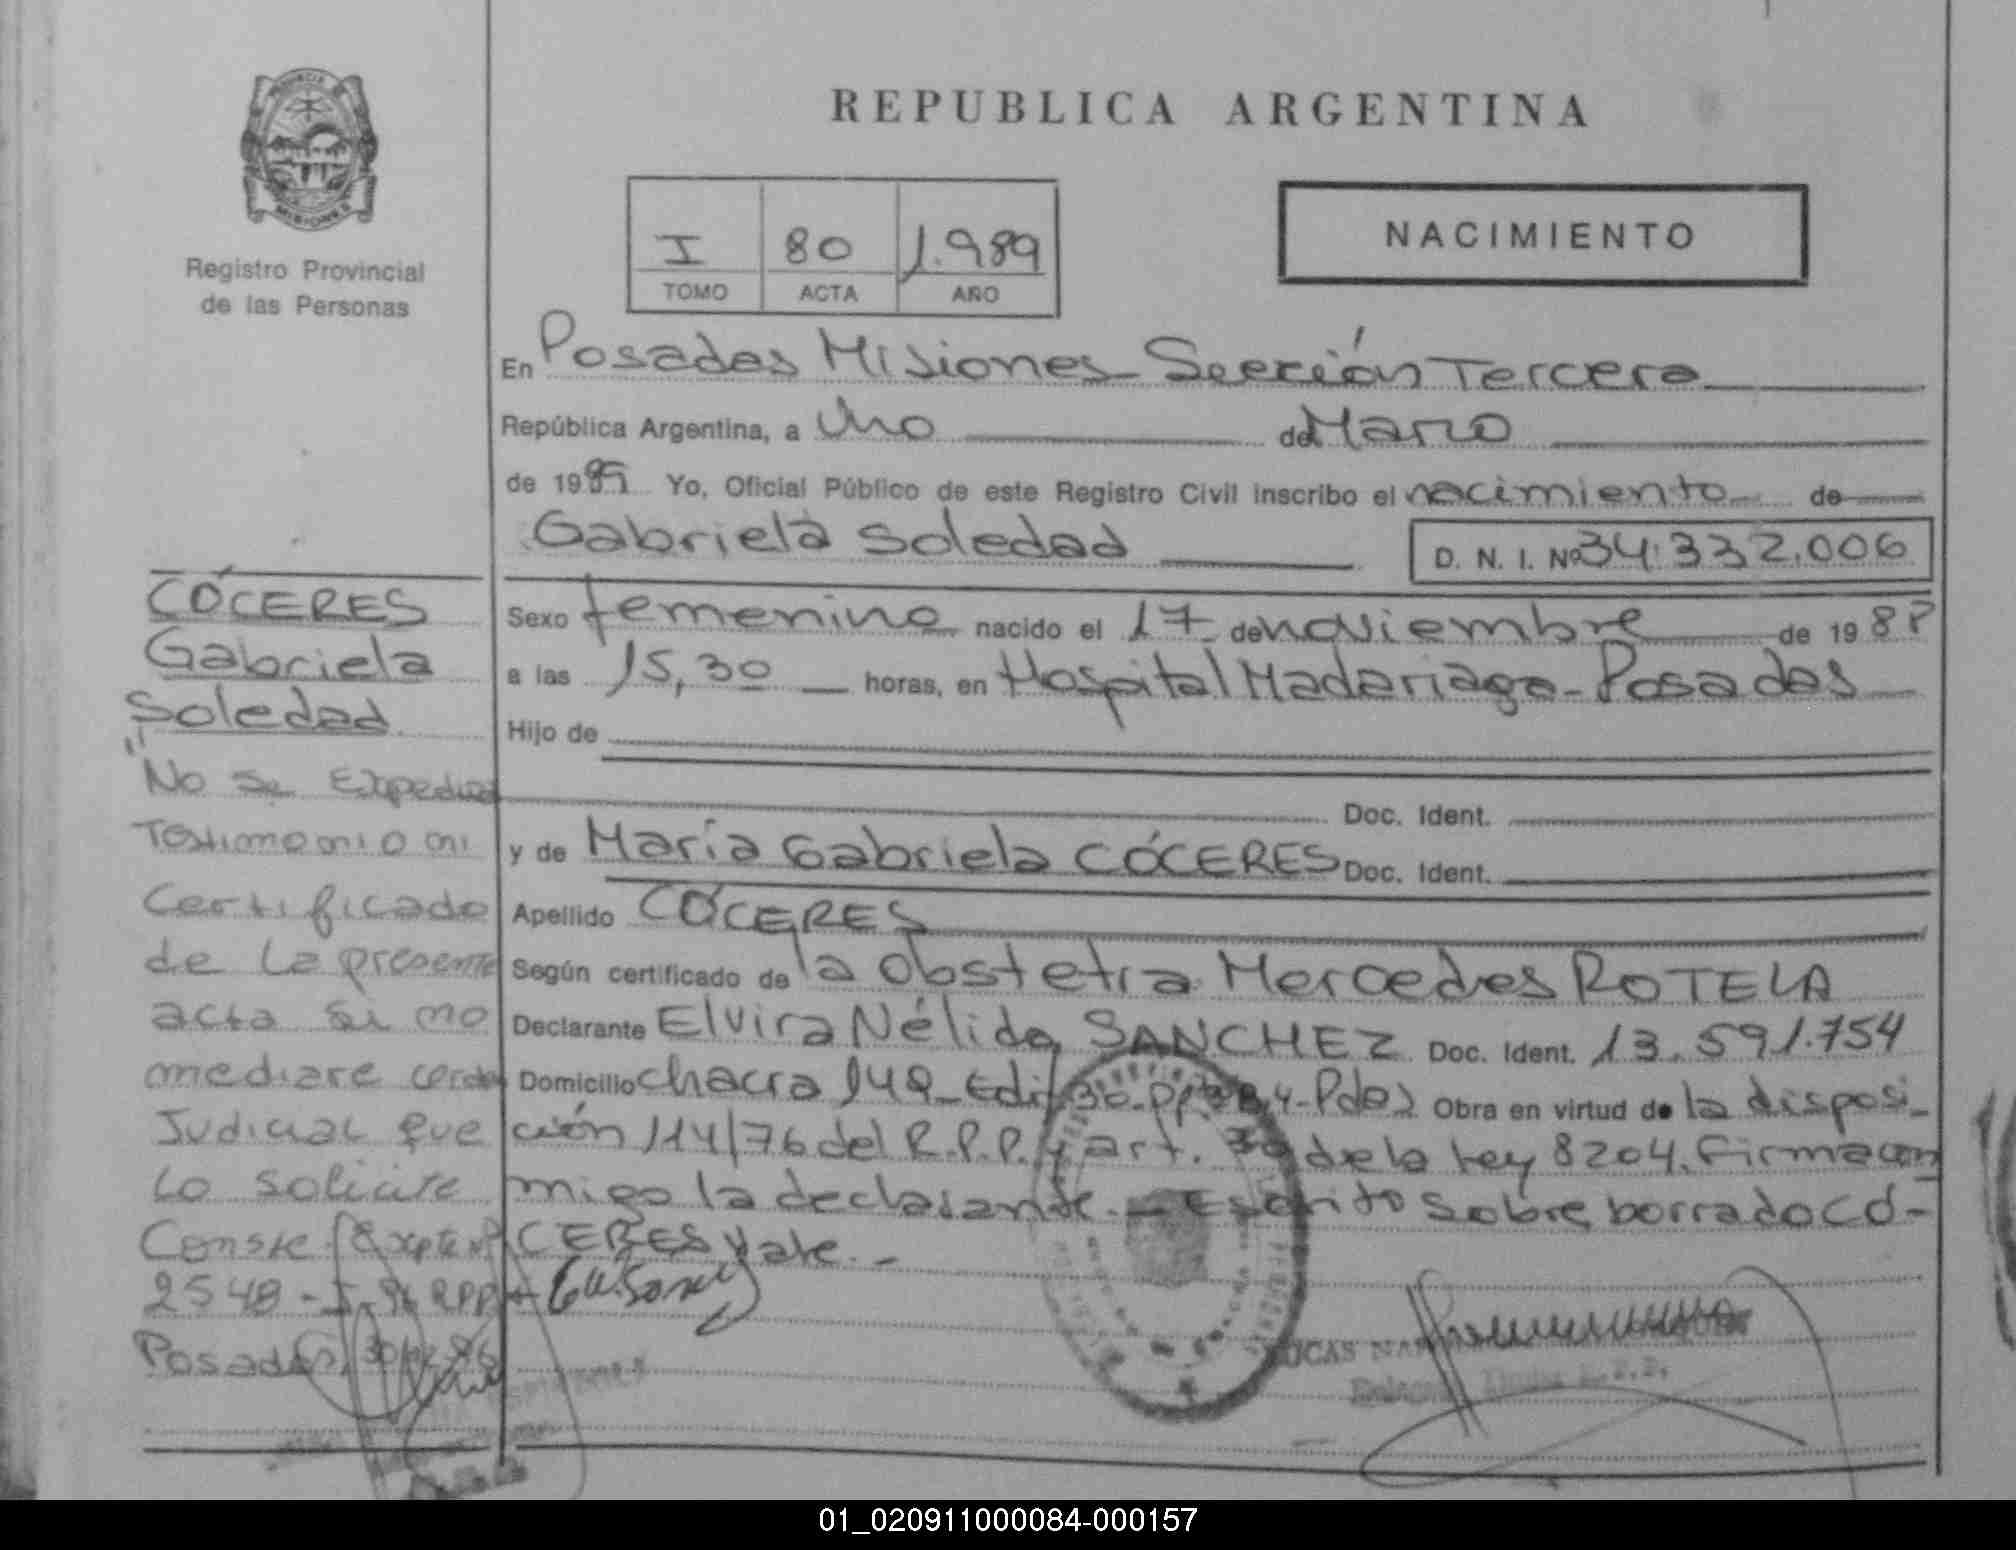 REPUBLICA ARGENTINA
PROVINCIA
MISIONES
Registro Provincial
de las Personas
I 80 1.989
TOMO ACTA AÑO
NACIMIENTO
En Posadas Misiones Sección Tercera
República Argentina, a Uno de Marzo
de 1989 Yo, Oficial Público de este Registro Civil inscribo el nacimiento de
Gabriela Soledad D. N. I. Nº 34.332.006
Sexo femenino nacido el 17 de noviembre de 198
a las 15,30 horas, en Hospital Madariaga - Posadas
Hijo de
Doc. Ident.
y de María Gabriela CÓCERES Doc. Ident.
Apellido CÓCERES
Según certificado de la obstetra Mercedes ROTELA
Declarante Elvira Nélida SANCHEZ Doc. Ident. 13.591.754
Domicilio chacra 149 - Edif 30 Obra en virtud de la disposi-
ción 114/76 del R.P.P. y art. de la Ley 8204. Firma con
migo la declarante. - Escrito sobre borrado CÓ-
CERES vale. -
CÓCERES
Gabriela
Soledad
"No se Expedirá
Testimonio ni
Certificado
de la presente
acta si no
mediare orden
Judicial que
lo solicite
Conste
2548 - RPP
Posadas
01_020911000084-000157